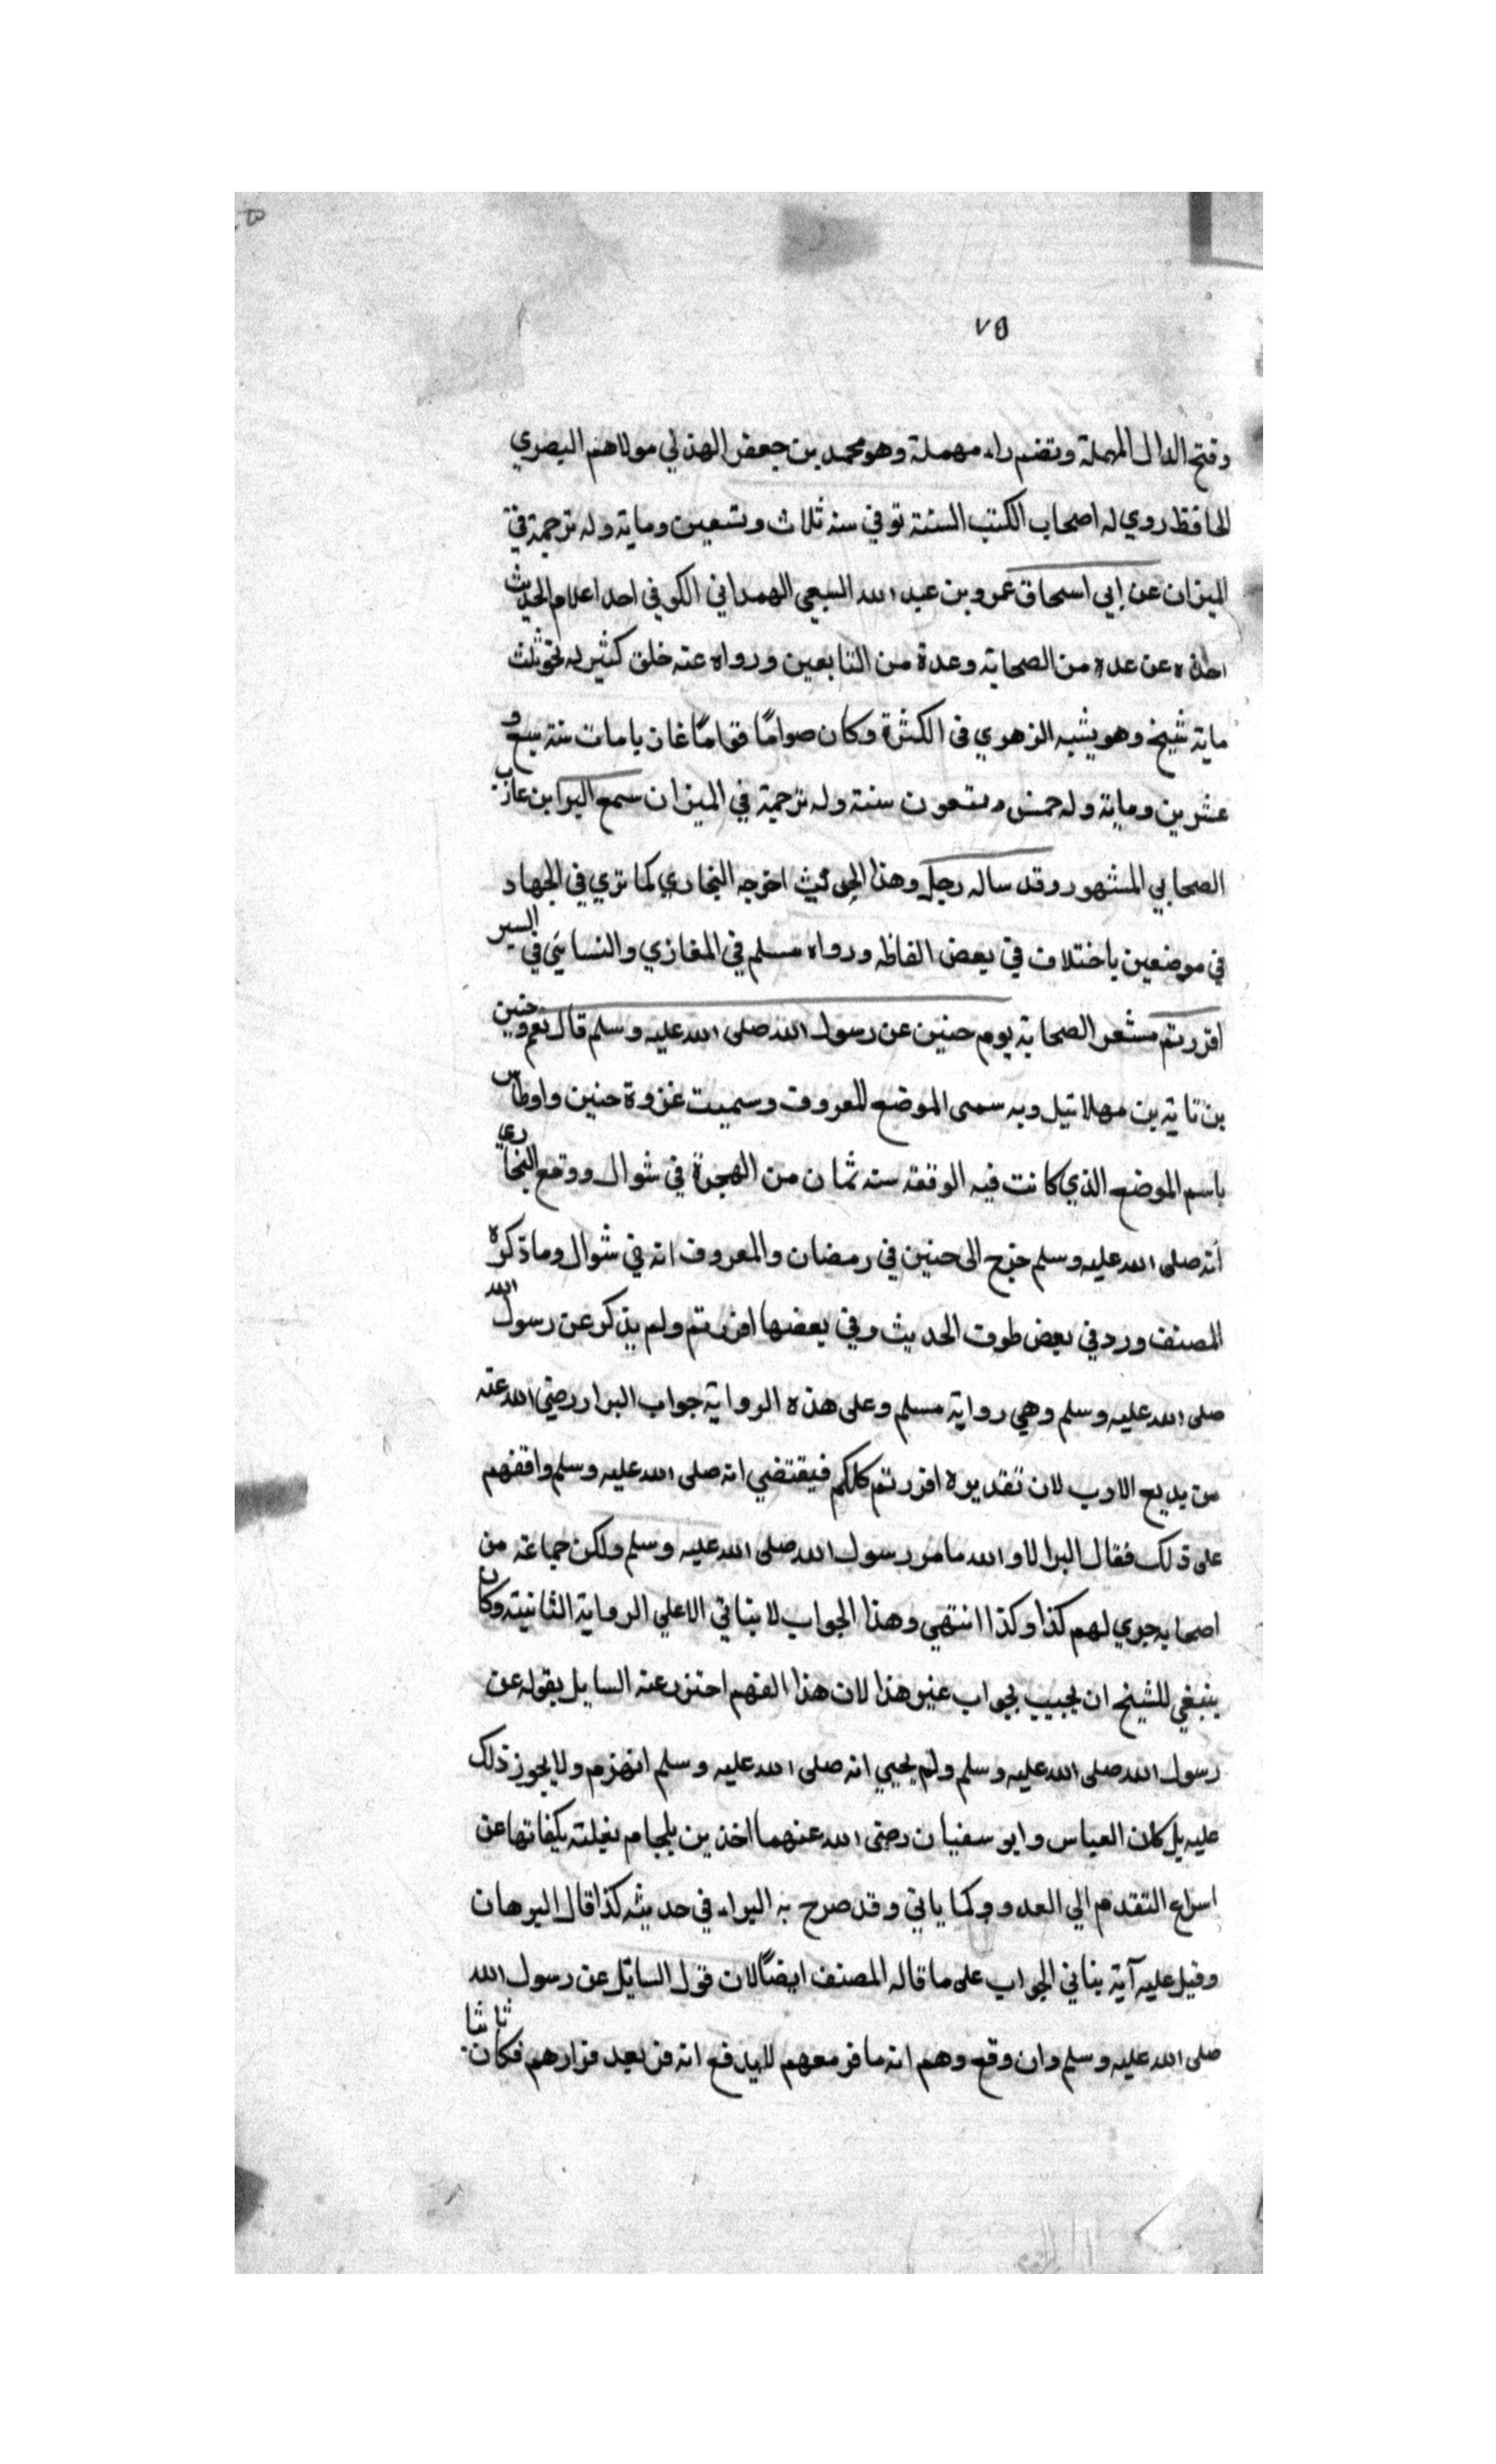 ٧٥
وفتح الدال المهملة وتضم راء مهملة وهو محمد بن جعفر الهذلي مولاهم البصري
الحافظ روي له اصحاب الكتب الستة توفي سنه ثلاث وتسعين وماية وله ترجمة في
الميزان عن إبي اسحاق عمرو بن عبد الله السبعي الهمداني الكوفي احد اعلام الحديث
اخذه عن عدة من الصحابة وعدة من التابعين ورواه عنه خلق كثير له نحو ثلث
ماية شيخ وهو يشبه الزهوي في الكثرة وكان صوامًا قوامًا غازيا مات سنة سبع و
عشرين وماية وله خمس وتسعون سنة وله ترجمة في الميزان سمع البرا بن عازب
الصحابي المشهور وقد ساله رجل وهذا الحديث اخرجه البخاري كما تري في الجهاد
في موضعين باختلاف في بعض الفاظه ورواه مسلم في المغازي والنسايي في السير
افررتم مشعر الصحابة يوم حنين عن رسول الله صلى الله عليه وسلم قال نعم وحنين
بن تاية بن مهلائيل وبه سمى الموضع المعروف وسميت غزوة حنين واوطاس
باسم الموضع الذي كانت فيه الوقعه سنه ثمان من الهجرة في شوال ووقع البخاري
أنه صلى الله عليه وسلم خرج الى حنين في رمضان والمعروف انه في شوال وما ذكره
المصنف ورد في بعض طرق الحديث وفي بعضها افررتم ولم يذكر عن رسول الله
صلى الله عليه وسلم وهي رواية مسلم وعلى هذه الرواية جواب البرا رضي الله عنه
من بديع الادب لان تقديره افررتم كلكم فيقتضي انه صلى الله عليه وسلم وافقهم
على ذلك فقال البرا لا والله ما فر رسول الله صلى الله عليه وسلم ولكن جماعة من
اصحابه جري لهم كذا وكذا انتهي وهذا الجواب لا يتاتي الا علي الرواية الثانيته وكان
ينبغي للشيخ ان يجيب بجواب غير هذا لان هذا الفهم احترز عنه السايل بقوله عن
رسول الله صلى الله عليه وسلم ولم يجيي انه صلى الله عليه وسلم انهزم ولا يجوز ذلك
عليه بل كان العباس وابو سفيان رضى الله عنهما اخذين بلجام بغلته يكفانها عن
اسراع التقدم إلي العدو وكما ياتي وقد صرح به البراء في حديثه كذا قال البرهان
وقيل عليه آية ينافي الجواب على ما قاله المصنف ايضًا لان قول السائل عن رسول الله
صلى الله عليه وسلم وان وقع وهم انه ما فر معهم لا يدفع انه فر بعد فرارهم فكان ناشا